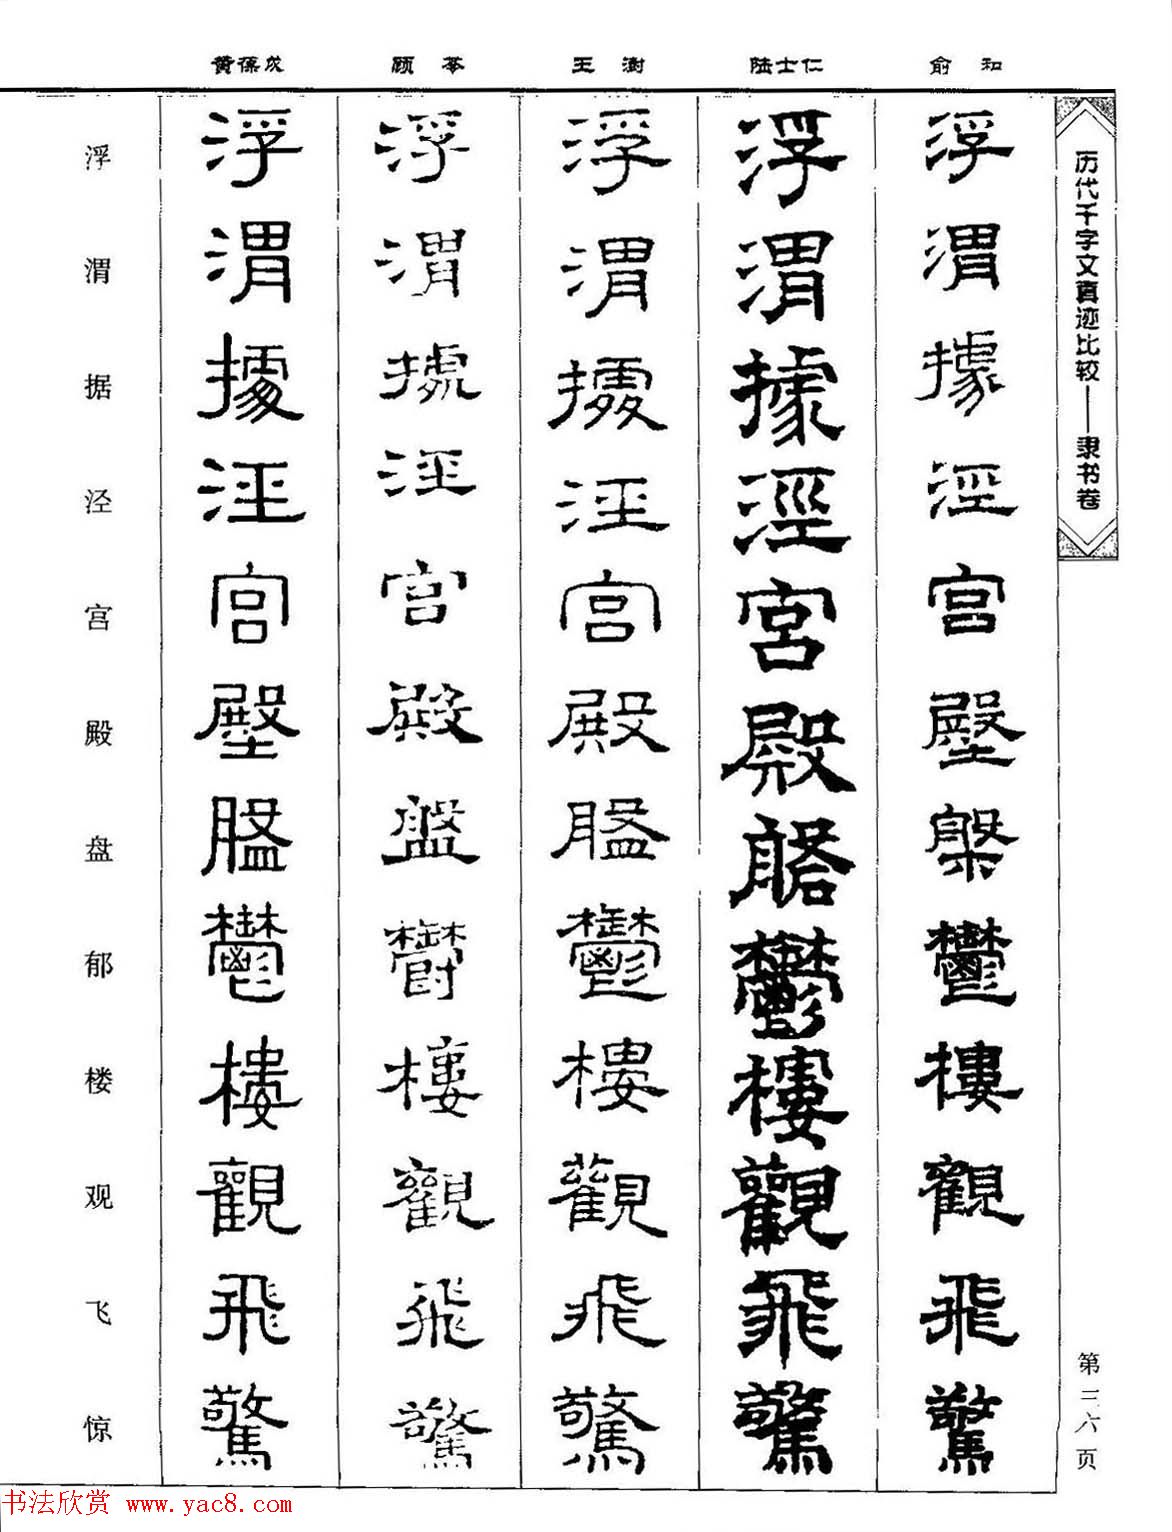 俞和
陆士仁
王澍
顾苓
黄葆戉
历代千字文真迹比较——隶书卷
第三六页
浮渭據涇宮殿槃鬱樓觀飛驚
浮渭據涇宮殿鬱樓觀飛驚
浮渭據涇宮殿鬱樓觀飛驚
浮渭據涇宮殿盤鬱樓觀飛驚
浮渭據涇宮殿鬱樓觀飛驚
浮渭据泾宫殿盘郁楼观飞惊
书法欣赏 www.yac8.com